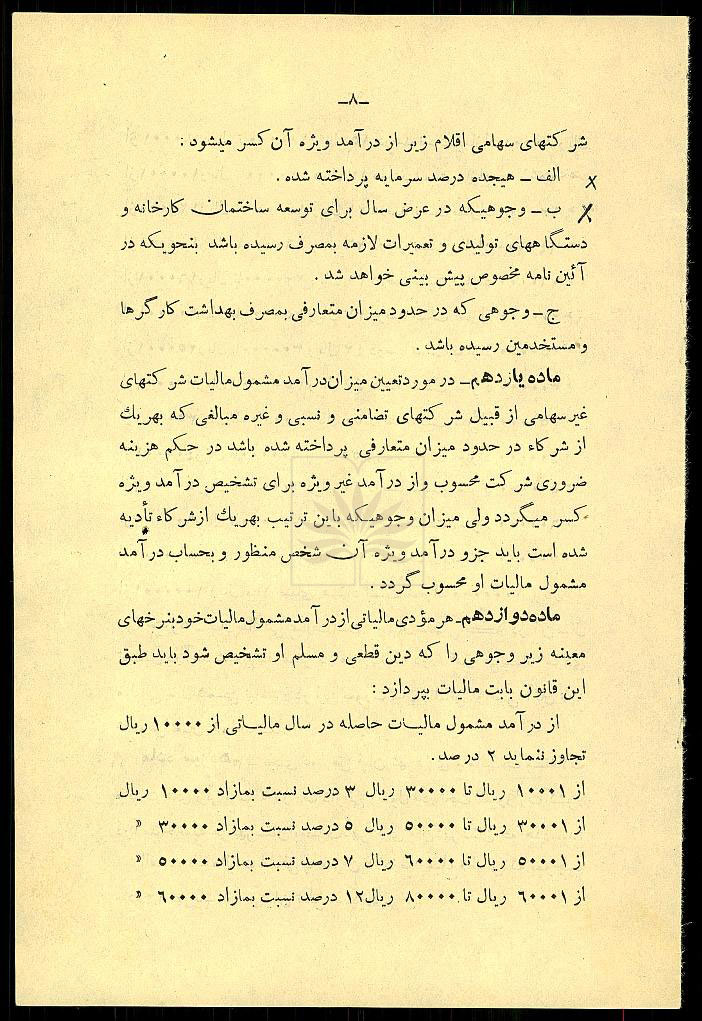 ـ۸ـ
شرکتهای سهامی اقلام زیر از درآمد ویژه آن کسر میشود :
الف ـ هیجده درصد سرمایه پرداخته شده .
ب ـ وجوهیکه در عرض سال برای توسعه ساختمان کارخانه و
دستگاههای تولیدی و تعمیرات لازمه بمصرف رسیده باشد بنحویکه در
آئین نامه مخصوص پیش بینی خواهد شد .
ج ـ وجوهی که در حدود میزان متعارفی بمصرف بهداشت کارگرها
و مستخدمین رسیده باشد .
ماده یازدهم ـ در مورد تعیین میزان درآمد مشمول مالیات شرکتهای
غیرسهامی از قبیل شرکتهای تضامنی و نسبی و غیره مبالغی که بهریك
از شرکاء در حدود میزان متعارفی پرداخته شده باشد در حکم هزینه
ضروری شرکت محسوب واز درآمد غیر ویژه برای تشخیص درآمد ویژه
کسر میگردد ولی میزان وجوهیکه باین ترتیب بهریك ازشرکاء تأدیه
شده است باید جزو درآمد ویژه آن شخص منظور و بحساب درآمد
مشمول مالیات او محسوب گردد .
ماده دوازدهم ـ هر مؤدی مالیاتی از درآمد مشمول مالیات خود بنرخهای
معینه زیر وجوهی را که دین قطعی و مسلم او تشخیص شود باید طبق
این قانون بابت مالیات بپردازد :
از درآمد مشمول مالیات حاصله در سال مالیاتی از ۱۰۰۰۰ ریال
تجاوز ننماید ۲ درصد .
از ۱۰۰۰۱ ریال تا ۳۰۰۰۰ ریال ۳ درصد نسبت بمازاد ۱۰۰۰۰ ریال
از ۳۰۰۰۱ ریال تا ۵۰۰۰۰ ریال ۵ درصد نسبت بمازاد ۳۰۰۰۰ «
از ۵۰۰۰۱ ریال تا ۶۰۰۰۰ ریال ۷ درصد نسبت بمازاد ۵۰۰۰۰ «
از ۶۰۰۰۱ ریال تا ۸۰۰۰۰ ریال ۱۲ درصد نسبت بمازاد ۶۰۰۰۰ «